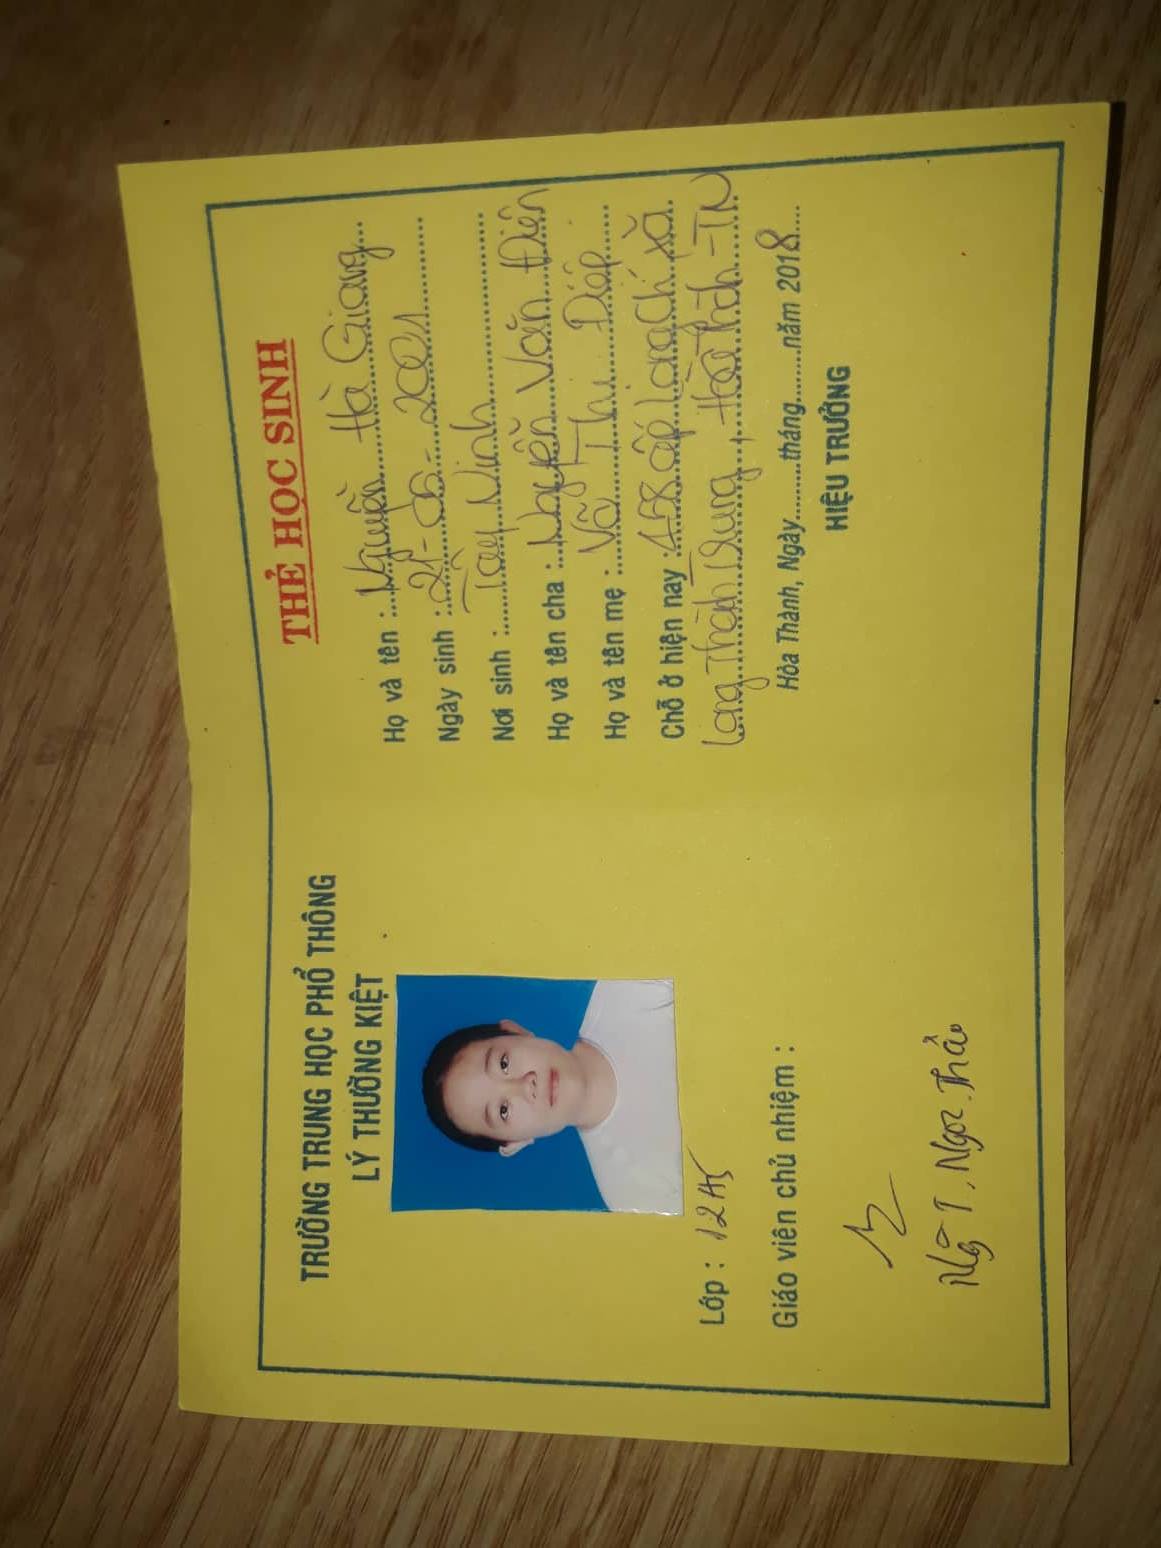 TRƯỜNG TRUNG HỌC PHỔ THÔNG
LÝ THƯỜNG KIỆT
Lớp : 12A5
Giáo viên chủ nhiệm :
Ngô T. Ngọc Thảo
THẺ HỌC SINH
Họ và tên : Nguyễn Hà Giang
Ngày sinh : 21-06-2001
Nơi sinh : Tây Ninh
Họ và tên cha : Nguyễn Văn Điền
Họ và tên mẹ : Võ Thị Diệp
Chỗ ở hiện nay : 458 ấp Long Chí xã
Long Thành Trung, Hòa Thành-TN
Hòa Thành, Ngày.........tháng.........năm 2018
HIỆU TRƯỞNG